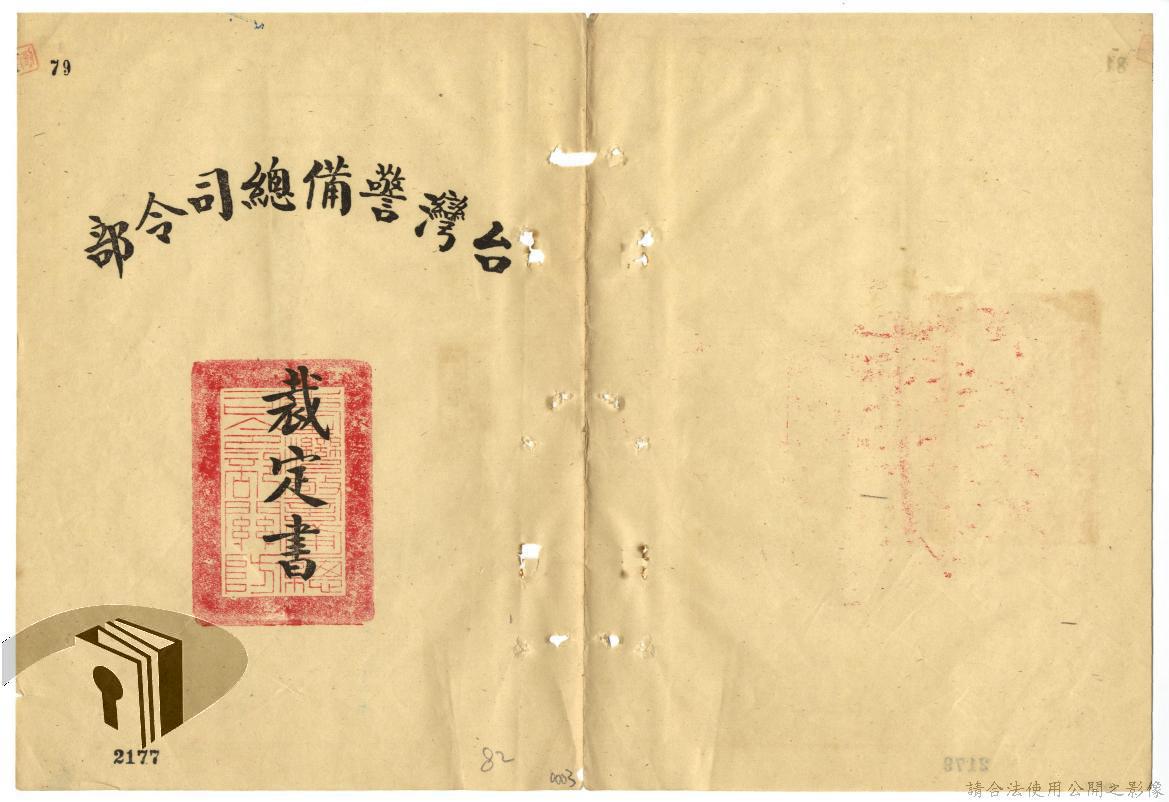 79
台灣警備總司令部
裁定書
2177
82
0003
請合法使用公開之影像